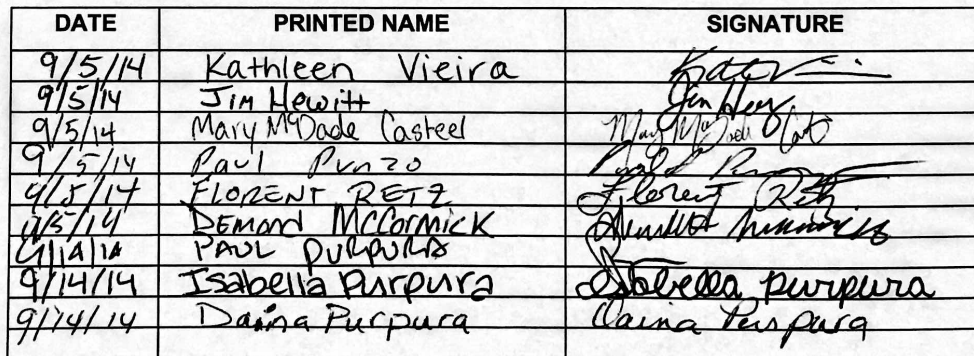 DATE PRINTED NAME SIGNATURE
9/5/14 Kathleen Vieira
9/5/14 Jim Hewitt
9/5/14 Mary McDade Casteel
9/5/14 Paul Punzo
9/5/14 FLORENT RETZ Florent Retz
9/5/14 DEMOND MCCORMICK
9/14/14 PAUL PURPURA
9/14/14 Isabella Purpura Isabella purpura
9/14/14 Daina Purpura Daina Purpura